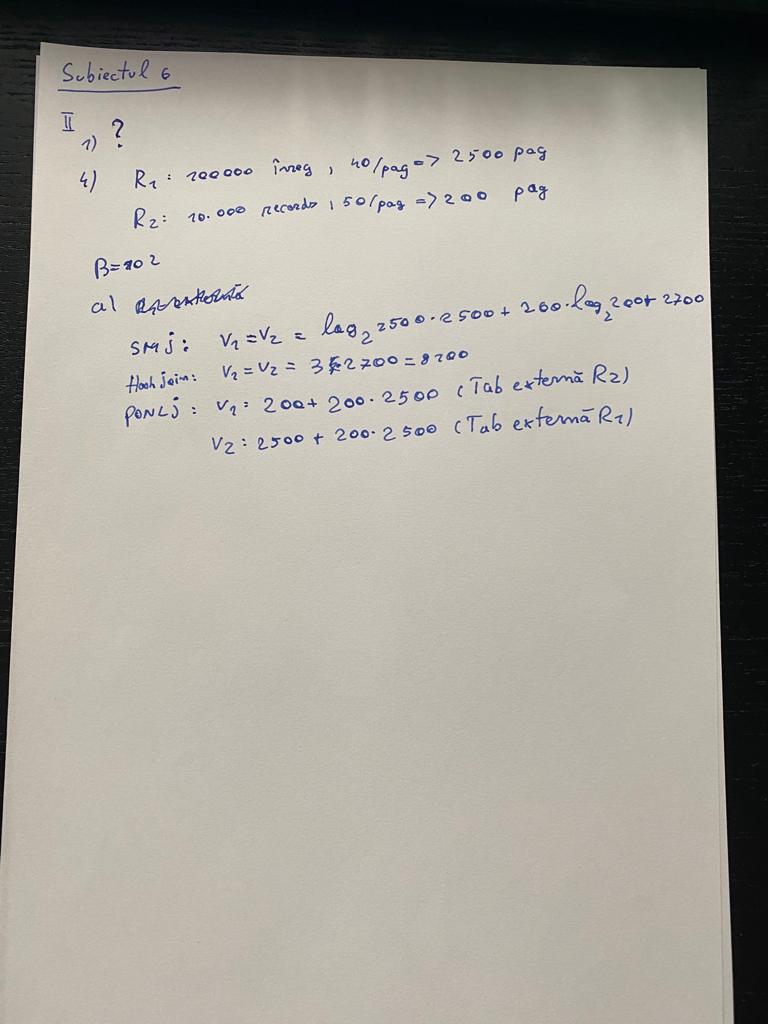 Subiectul 6
II
1) ?
4) R1: 100000 înreg, 40/pag => 2500 pag
R2: 10.000 records, 50/pag => 200 pag
B=102
a)
SMJ: V1=V2 = log2 2500·2500 + 200·log2 200 + 2700
Hash join: V1=V2 = 3·2700=8200
PONLJ: V1: 200+ 200·2500 (Tab externă R2)
V2: 2500 + 200·2500 (Tab externă R1)